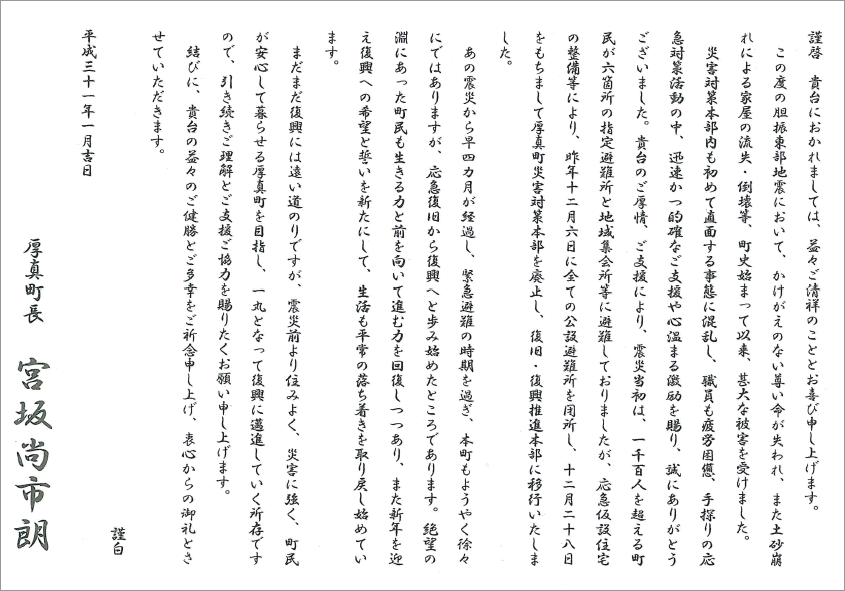 謹啓　貴台におかれましては、益々ご清祥のこととお喜び申し上げます。
　この度の胆振東部地震において、かけがえのない尊い命が失われ、また土砂崩
れによる家屋の流失・倒壊等、町史始まって以来、甚大な被害を受けました。
　災害対策本部内も初めて直面する事態に混乱し、職員も疲労困憊、手探りの応
急対策活動の中、迅速かつ的確なご支援や心温まる激励を賜り、誠にありがとう
ございました。貴台のご厚情、ご支援により、震災当初は、一千百人を超える町
民が六箇所の指定避難所と地域集会所等に避難しておりましたが、応急仮設住宅
の整備等により、昨年十二月六日に全ての公設避難所を閉所し、十二月二十八日
をもちまして厚真町災害対策本部を廃止し、復旧・復興推進本部に移行いたしま
した。
　あの震災から早四カ月が経過し、緊急避難の時期を過ぎ、本町もようやく徐々
にではありますが、応急復旧から復興へと歩み始めたところであります。絶望の
淵にあった町民も生きる力と前を向いて進む力を回復しつつあり、また新年を迎
え復興への希望と誓いを新たにして、生活も平常の落ち着きを取り戻し始めてい
ます。
　まだまだ復興には遠い道のりですが、震災前より住みよく、災害に強く、町民
が安心して暮らせる厚真町を目指し、一丸となって復興に邁進していく所存です
ので、引き続きご理解とご支援ご協力を賜りたくお願い申し上げます。
　結びに、貴台の益々のご健勝とご多幸をご祈念申し上げ、衷心からの御礼とさ
せていただきます。
謹白
平成三十一年一月吉日
厚真町長　宮坂尚市朗